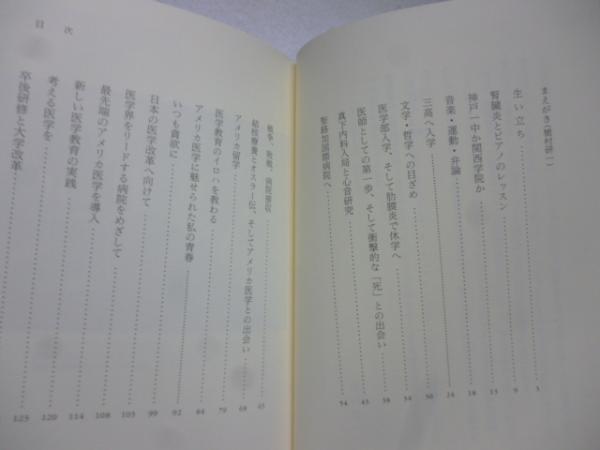 目次
まえがき(植村研一)
生い立ち 3
腎臓炎とピアノのレッスン 9
神戸一中か関西学院か 13
音楽・運動・弁論 18
三高へ入学 24
文学・哲学への目ざめ 30
医学部入学、そして肋膜炎で休学へ 34
医師としての第一歩、そして衝撃的な「死」との出会い 38
真下内科入局と心音研究 45
聖路加国際病院へ 54
戦争、敗戦、病院接収
結核療養とオスラー伝、そしてアメリカ医学との出会い 65
アメリカ留学 69
医学教育のイロハを教わる 79
アメリカ医学に魅せられた私の青春 84
いつも貪欲に 92
日本の医学改革へ向けて 99
医学界をリードする病院をめざして 103
最先端のアメリカ医学を導入 108
新しい医学教育の実践 114
考える医学を 120
卒後研修と大学改革 125